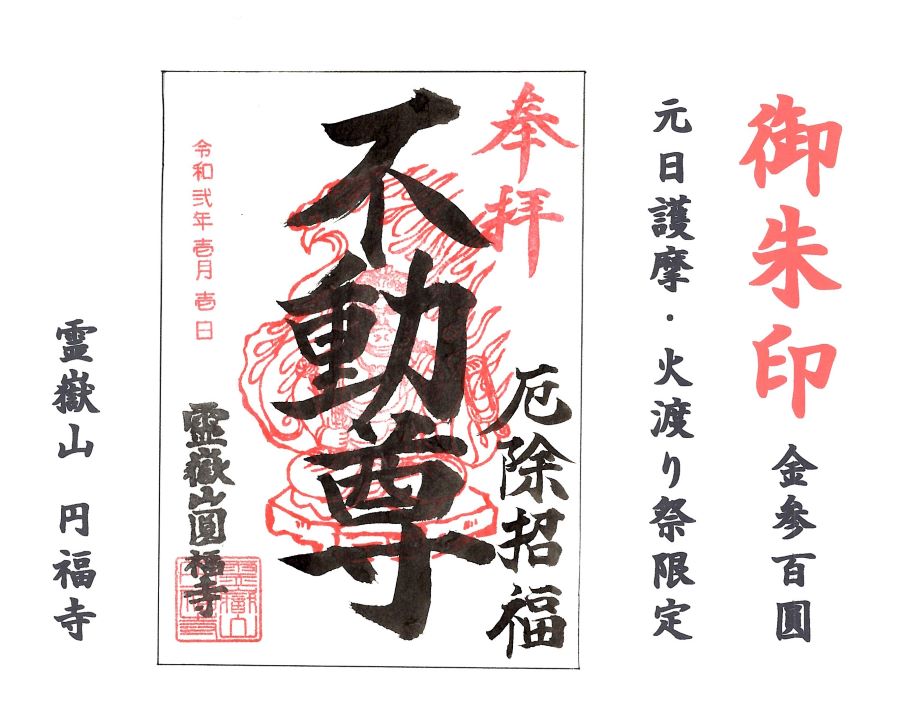 御朱印 金参百圓
元日護摩・火渡り祭限定
奉拝
厄除招福
不動尊
令和弐年壱月壱日
霊嶽山圓福寺
霊嶽山 円福寺